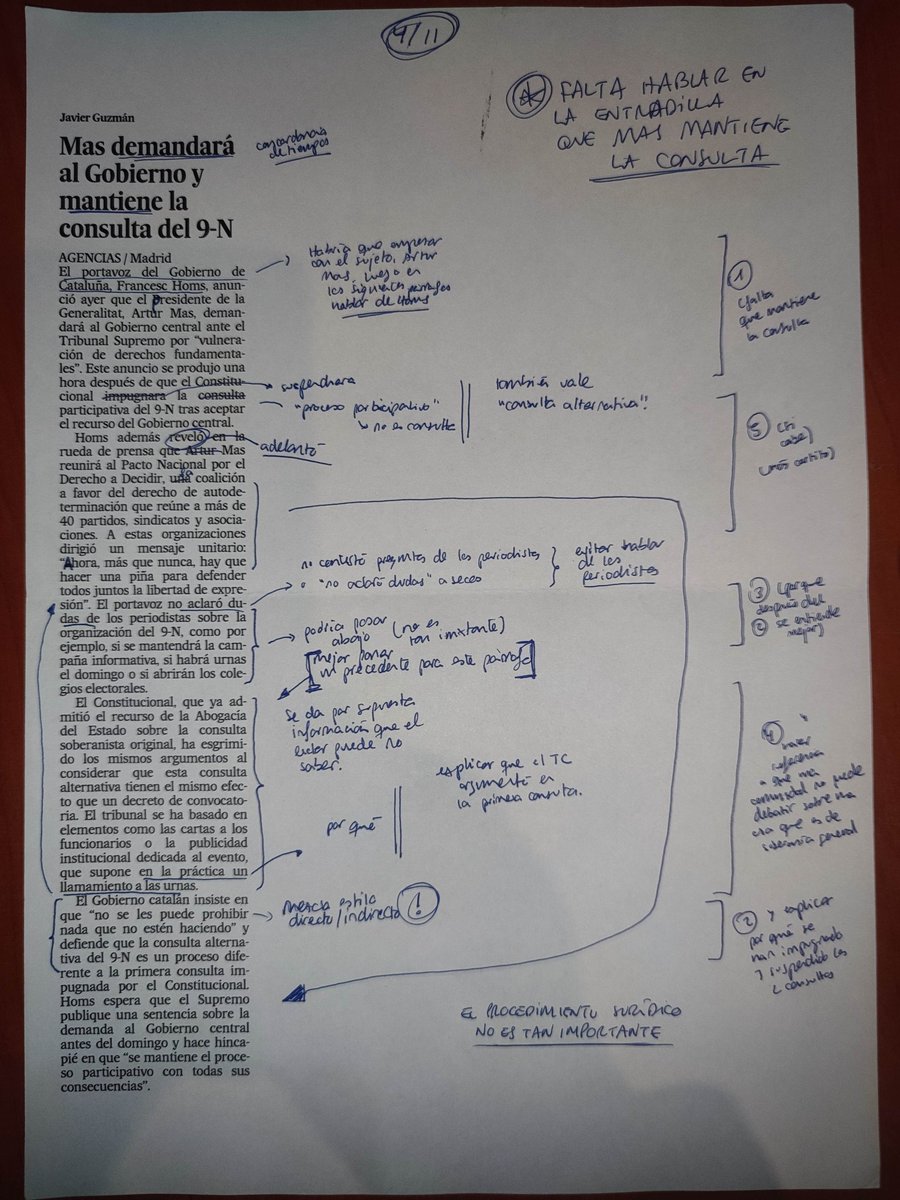 4/11
FALTA HABLAR EN
LA ENTRADILLA
QUE MAS MANTIENE
LA CONSULTA
Javier Guzmán
Mas demandará
al Gobierno y
mantiene la
consulta del 9-N
concordancia
de tiempos
AGENCIAS / Madrid
El portavoz del Gobierno de
Cataluña, Francesc Homs, anun-
ció ayer que el Presidente de la
Generalitat, Artur Mas, deman-
dará al Gobierno central ante el
Tribunal Supremo por “vulnera-
ración de derechos fundamenta-
les”. Este anuncio se produjo una
hora después de que el Constitu-
cional impugnara la consulta
participativa del 9-N tras aceptar
el recurso del Gobierno central.
Homs además reveló en la
rueda de prensa que Artur Mas
reunirá al Pacto Nacional por el
Derecho a Decidir, una coalición
a favor del derecho de autode-
terminación que reúne a más de
40 partidos, sindicatos y asocia-
ciones. A estas organizaciones
dirigió un mensaje unitario:
“Ahora, más que nunca, hay que
hacer una piña para defender
todos juntos la libertad de expre-
sión”. El portavoz no aclaró du-
das de los periodistas sobre la
organización del 9-N, como por
ejemplo, si se mantendrá la cam-
paña informativa, si habrá urnas
el domingo o si abrirán los cole-
gios electorales.
El Constitucional, que ya ad-
mitió el recurso de la Abogacía
del Estado sobre la consulta
soberanista original, ha esgrimi-
do los mismos argumentos al
considerar que esta consulta
alternativa tienen el mismo efec-
to que un decreto de convocato-
ria. El tribunal se ha basado en
elementos como las cartas a los
funcionarios o la publicidad
institucional dedicada al evento,
que supone en la práctica un
llamamiento a las urnas.
El Gobierno catalán insiste en
que “no se les puede prohibir
nada que no estén haciendo” y
defiende que la consulta alterna-
tiva del 9-N es un proceso dife-
rente a la primera consulta im-
pugnada por el Constitucional.
Homs espera que el Supremo
publique una sentencia sobre la
demanda al Gobierno central
antes del domingo y hace hinca-
pié en que “se mantiene el proce-
so participativo con todas sus
consecuencias”.
Habría que empezar
con el sujeto, Artur
Mas, luego en
los siguientes párrafos
hablar de Homs
suspendiera
“proceso participativo”
no es consulta
también vale
“consulta alternativa”.
adelantó
no contestó preguntas de los periodistas
o “no aclaró dudas” a secas
evitar hablar
de los
periodistas
podría pasar
abajo (no es
tan importante)
mejor poner
un precedente para este párrafo
Se da por supuesta
información que el
lector puede no
saber.
explicar que el TC
argumentó en
la primera consulta.
por qué
Mezcla estilo
directo/indirecto !
EL PROCEDIMIENTO JURÍDICO
NO ES TAN IMPORTANTE
1
(falta
que mantiene
la consulta
5 (si
cabe)
(más cortito)
3 (porque
después del
2 se entiende
mejor)
4 hacer
referencia
a que una
comunidad no puede
debatir sobre una
cosa que es de
soberanía general
2 y explicar
por qué se
han impugnado
y suspendido las
2 consultas